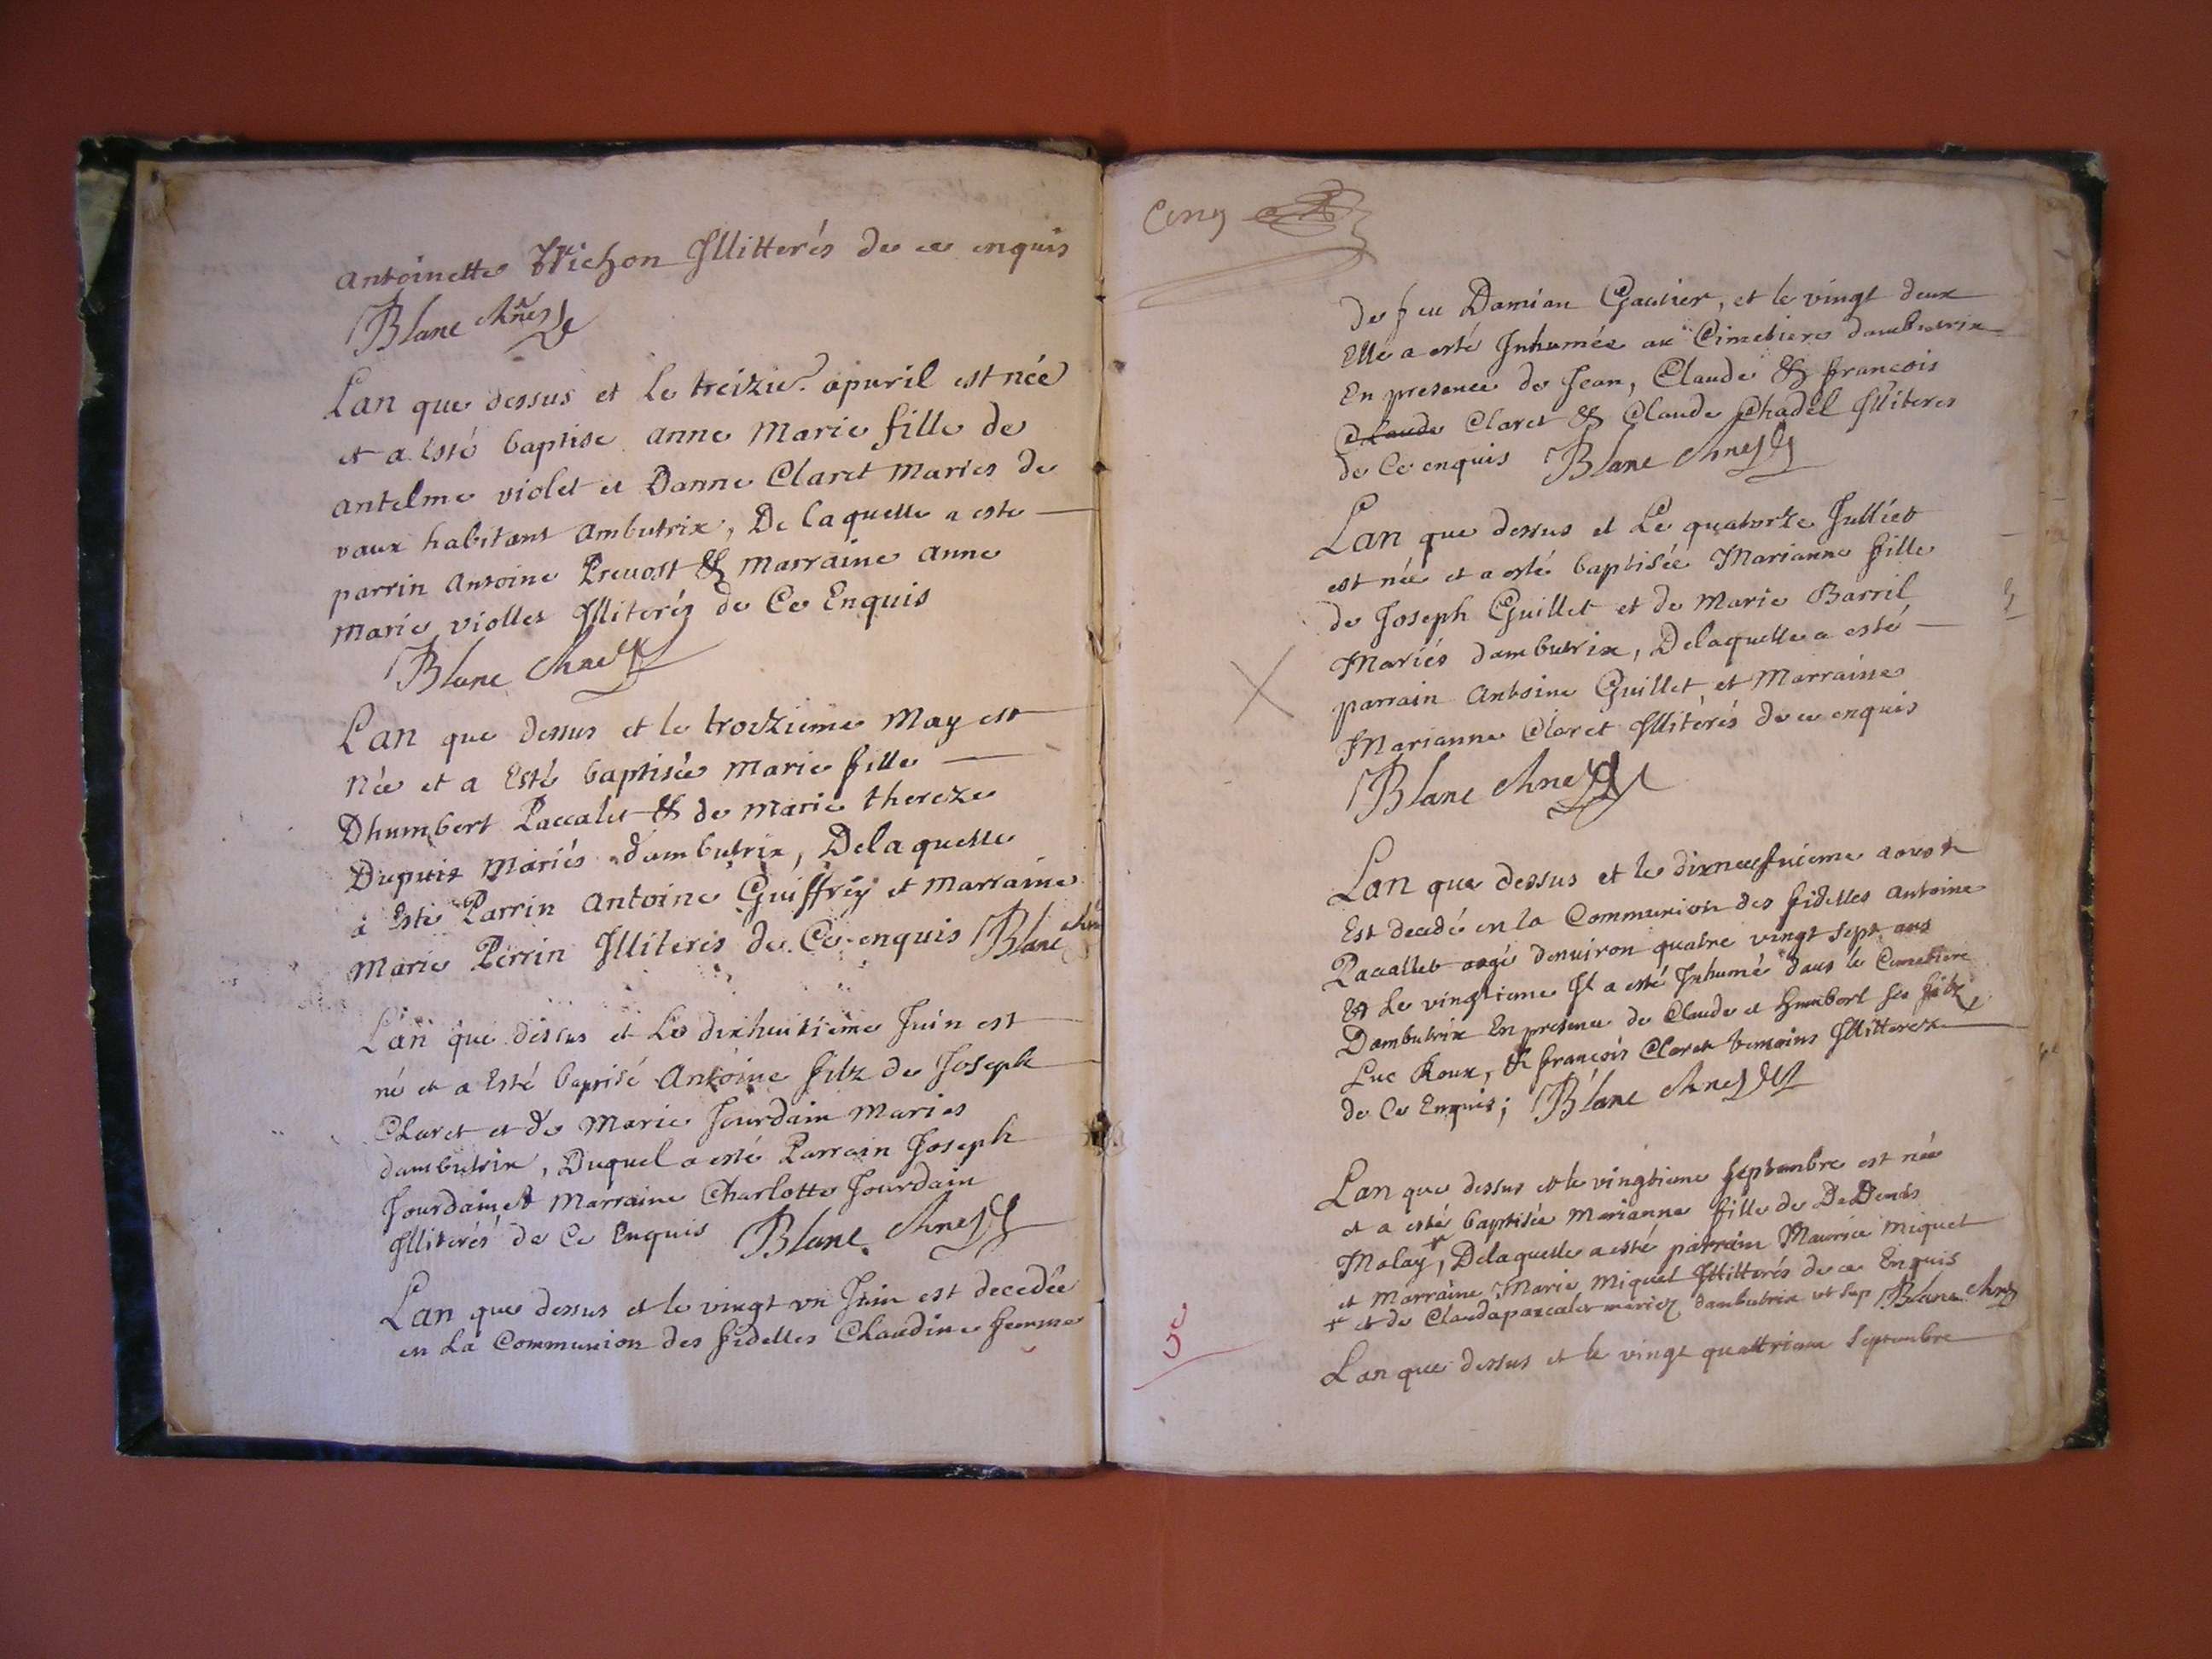 antoinette Trichon Illitterés de ce enquis
Blanc chñe
Lan que dessus et le treizie. apuril est née
et a Esté baptise anne Marie fille de
antelme violet et Danne Claret Maries de
vaux habitant ambutrix, De laquelle a este
parrin Antoine Preuost & marraine anne
marie viollet Illiteréz de Ce Enquis
Blanc chne
Lan que dessus et le troizieme May est
Née et a Esté baptisée Marie fille
Dhumbert Paccalet & de marie thereze
Dupuis Mariés dambutrix, Delaquelle
à Esté Parrin Antoine Guiffrey et Marraine
Marie Perrin Illiterés de Ce enquis Blanc chne
Lan que dessus et Le dixhuitieme Juin est
né et a Esté baptisé Antoine filz de Joseph
Claret et de Marie Jourdain Maries
dambutrix, Duquel a esté Parrain Joseph
Jourdain et Marraine Charlotte Jourdain
Illiterés de Ce Enquis Blanc chne
Lan que dessus et le vingt vn Juin est decedée
en La Communion des fidelles Claudine femme
Cinq
de feu Damian Gautier, et le vingt deux
Elle a esté Inhumée au Cimetiere dambutrix
En presence de Jean, Claude & francois
Claude Claret & Claude Chadel Illiteres
de Ce enquis Blanc chne
Lan que dessus et Le quatorze Julliet
est née et a esté baptisée Marianne fille
de Joseph Guillet et de Marie Barril
Mariés dambutrix, Delaquelle a esté
parrain Antoine Guillet et Marraine
Marianne Claret Illitérés de ce enquis
Blanc chne
Lan que dessus et le dixneufuieme aoust
Est decedé en la Communion des fidelles Antoine
Paccallet aagé denuiron quatre vingt sept ans
Et Le vingtieme Il a esté Inhumé dans le Cimetiere
Dambutrix En presence de Claude et humbert ses filz
Luc Roux, & françois Claret temoins Illitterez
de Ce Enquis; Blanc chne
Lan que dessus et le vingtieme septembre est née
et a esté baptisée Marianne fille de Denis
Molay +, Delaquelle a esté parrain Maurice Miguet
et Marraine Marie Miguet Illitterés de ce Enquis
+ et de Clauda paccalet mariez dambutrix vt sup Blanc chne
Lan que dessus et le vingt quattrieme Septembre